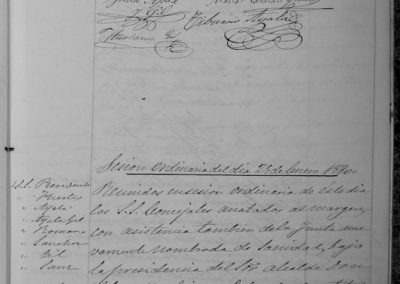 y Gil Tiburcio Ayala
Sesion ordinaria del dia 29 de Enero 1890
S.S. Presidente
" Fuertes
" Ayala
" Ayala Gil
" Romano
" Sanchez
" Gil
" Sanz
Reunidos en sesion ordinaria de este dia
los S.S. Concejales anotados al margen,
con asistencia tambien de la Junta nue
vamente nombrada de Sanidad, bajo
la presidencia del Sor alcalde Don